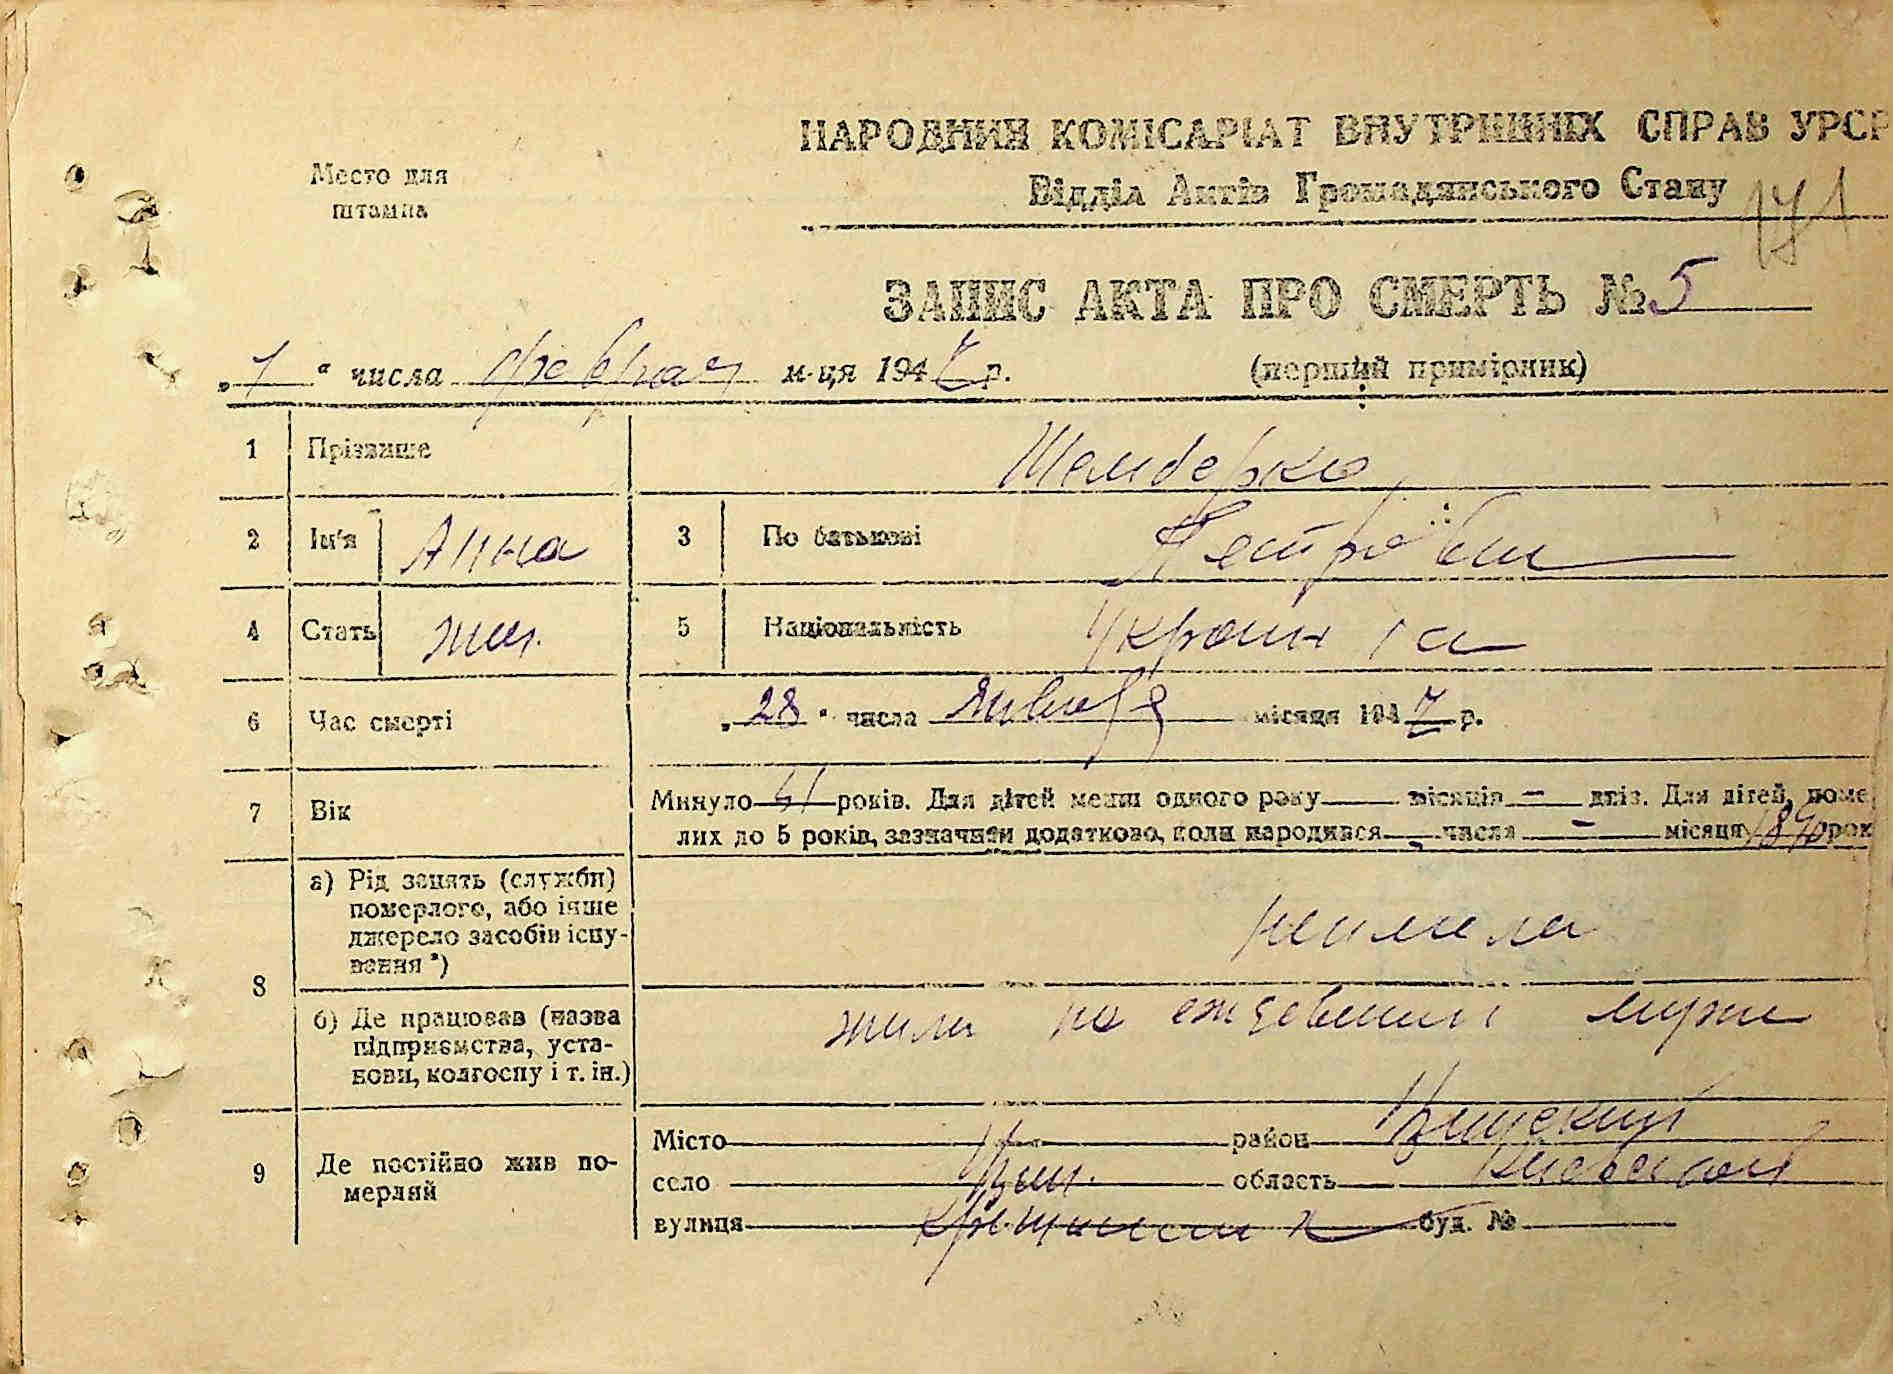 НАРОДНИЙ КОМІСАРІАТ ВНУТРІШНІХ СПРАВ УРСР
Место для штампа
Відділ Актів Громадянського Стану
171
ЗАПИС АКТА ПРО СМЕРТЬ № 5
„1“ числа февраля м-ця 1947 р.
(перший примірник)
1 Прізвище Шамберко
2 Ім'я Анна 3 По батькові Петровн
4 Стать жен. 5 Національність Украинка
6 Час смерті „28“ числа января місяця 1947 р.
7 Вік Минуло років. Для дітей менш одного року — місяців — днів. Для дітей, поме
лих до 5 років, зазначити додатково, коли народився — числа — місяця рок
8 а) Рід занять (служби)
померлого, або інше
джерело засобів існу-
вання *)
неимела
б) Де працював (назва
підприємства, уста-
нови, колгоспу і т. ін.)
жила на ижд мужа
9 Де постійно жив по-
мерлий
Місто район
село область Киевская
вулиця буд. №